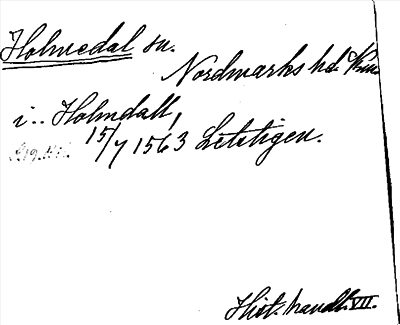 Holmedal sn.
Nordmarks hd
i.. Holmdall,
15/7 1563 Letstigen.
Hist. handl. VII.